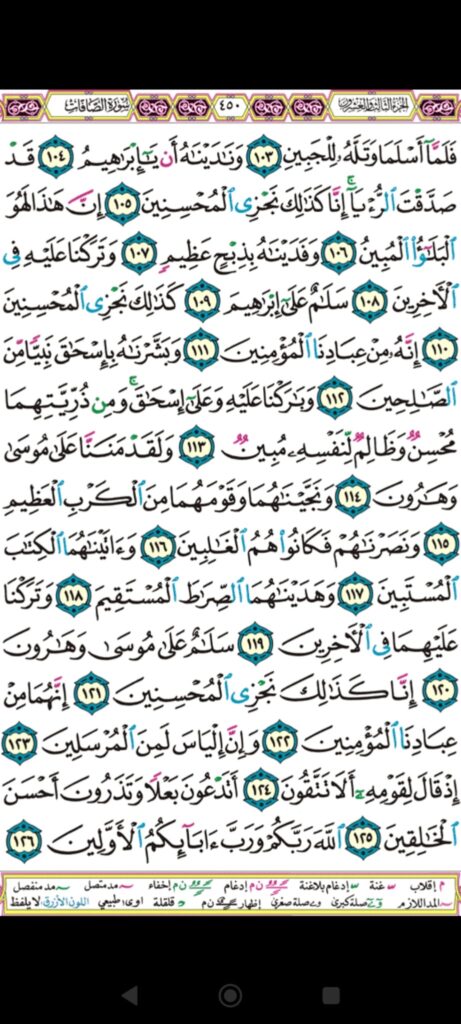 سُورَةُ الصَّافَّاتِ ٤٥٠ الجزء الثالث والعشرون
فَلَمَّآ أَسْلَمَا وَتَلَّهُۥ لِلْجَبِينِ ١٠٣ وَنَٰدَيْنَٰهُ أَن يَٰٓإِبْرَٰهِيمُ ١٠٤ قَدْ
صَدَّقْتَ ٱلرُّءْيَآۚ إِنَّا كَذَٰلِكَ نَجْزِى ٱلْمُحْسِنِينَ ١٠٥ إِنَّ هَٰذَا لَهُوَ
ٱلْبَلَٰٓؤُا۟ ٱلْمُبِينُ ١٠٦ وَفَدَيْنَٰهُ بِذِبْحٍ عَظِيمٍ ١٠٧ وَتَرَكْنَا عَلَيْهِ فِى
ٱلْءَاخِرِينَ ١٠٨ سَلَٰمٌ عَلَىٰٓ إِبْرَٰهِيمَ ١٠٩ كَذَٰلِكَ نَجْزِى ٱلْمُحْسِنِينَ
١١٠ إِنَّهُۥ مِنْ عِبَادِنَا ٱلْمُؤْمِنِينَ ١١١ وَبَشَّرْنَٰهُ بِإِسْحَٰقَ نَبِيًّا مِّنَ
ٱلصَّٰلِحِينَ ١١٢ وَبَٰرَكْنَا عَلَيْهِ وَعَلَىٰٓ إِسْحَٰقَۚ وَمِن ذُرِّيَّتِهِمَا
مُحْسِنٌ وَظَالِمٌ لِّنَفْسِهِۦ مُبِينٌ ١١٣ وَلَقَدْ مَنَنَّا عَلَىٰ مُوسَىٰ
وَهَٰرُونَ ١١٤ وَنَجَّيْنَٰهُمَا وَقَوْمَهُمَا مِنَ ٱلْكَرْبِ ٱلْعَظِيمِ
١١٥ وَنَصَرْنَٰهُمْ فَكَانُوا۟ هُمُ ٱلْغَٰلِبِينَ ١١٦ وَءَاتَيْنَٰهُمَا ٱلْكِتَٰبَ
ٱلْمُسْتَبِينَ ١١٧ وَهَدَيْنَٰهُمَا ٱلصِّرَٰطَ ٱلْمُسْتَقِيمَ ١١٨ وَتَرَكْنَا
عَلَيْهِمَا فِى ٱلْءَاخِرِينَ ١١٩ سَلَٰمٌ عَلَىٰ مُوسَىٰ وَهَٰرُونَ
١٢٠ إِنَّا كَذَٰلِكَ نَجْزِى ٱلْمُحْسِنِينَ ١٢١ إِنَّهُمَا مِنْ
عِبَادِنَا ٱلْمُؤْمِنِينَ ١٢٢ وَإِنَّ إِلْيَاسَ لَمِنَ ٱلْمُرْسَلِينَ ١٢٣
إِذْ قَالَ لِقَوْمِهِۦٓ أَلَا تَتَّقُونَ ١٢٤ أَتَدْعُونَ بَعْلًا وَتَذَرُونَ أَحْسَنَ
ٱلْخَٰلِقِينَ ١٢٥ ٱللَّهَ رَبَّكُمْ وَرَبَّ ءَابَآئِكُمُ ٱلْأَوَّلِينَ ١٢٦
م إقلاب غنة إدغام بلاغنة ن م إدغام ن م إخفاء مد متصل مد منفصل
المد اللازم صلة كبرى صلة صغرى إظهار ن م قلقلة اوى: طبيعي اللون الأزرق: لا يلفظ